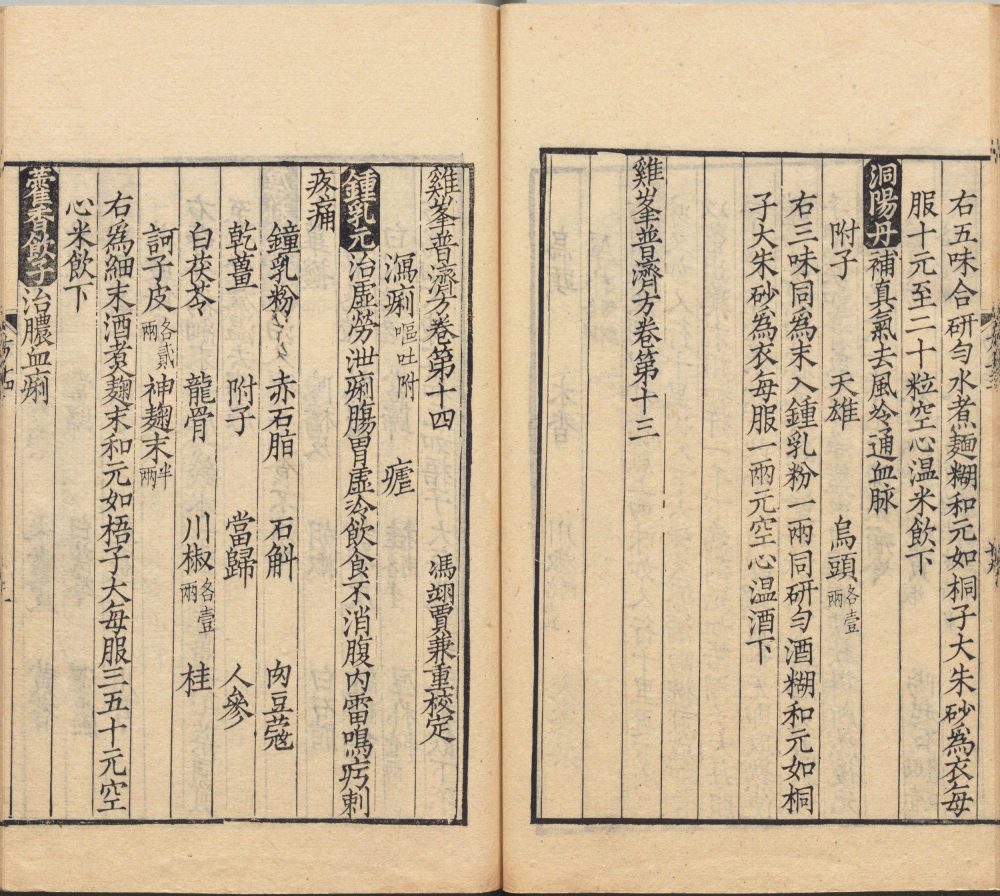 右五味合研勻水煮麵糊和元如桐子大朱砂為衣每
服十元至二十粒空心温米飲下
洞陽丹補真氣去風冷通血脉
附子 天雄 烏頭各壹兩
右三味同為末入鍾乳粉一兩同研勻酒糊和元如桐
子大朱砂為衣每服一兩元空心温酒下
雞峯普濟方卷第十三
雞峯普濟方卷第十四 馮翊賈兼重校定
瀉痢嘔吐附 瘧
鍾乳元治虛勞泄痢腸胃虛冷飲食不消腹内雷鳴㽱刺
疼痛
鐘乳粉 赤石脂 石斛 肉豆蔻
乾薑 附子 當歸 人參
白茯苓 龍骨 川椒各壹兩 桂
訶子皮各貳兩 神麹末半兩
右為細末酒煮麹末和元如梧子大每服三五十元空
心米飲下
藿香飲子治膿血痢